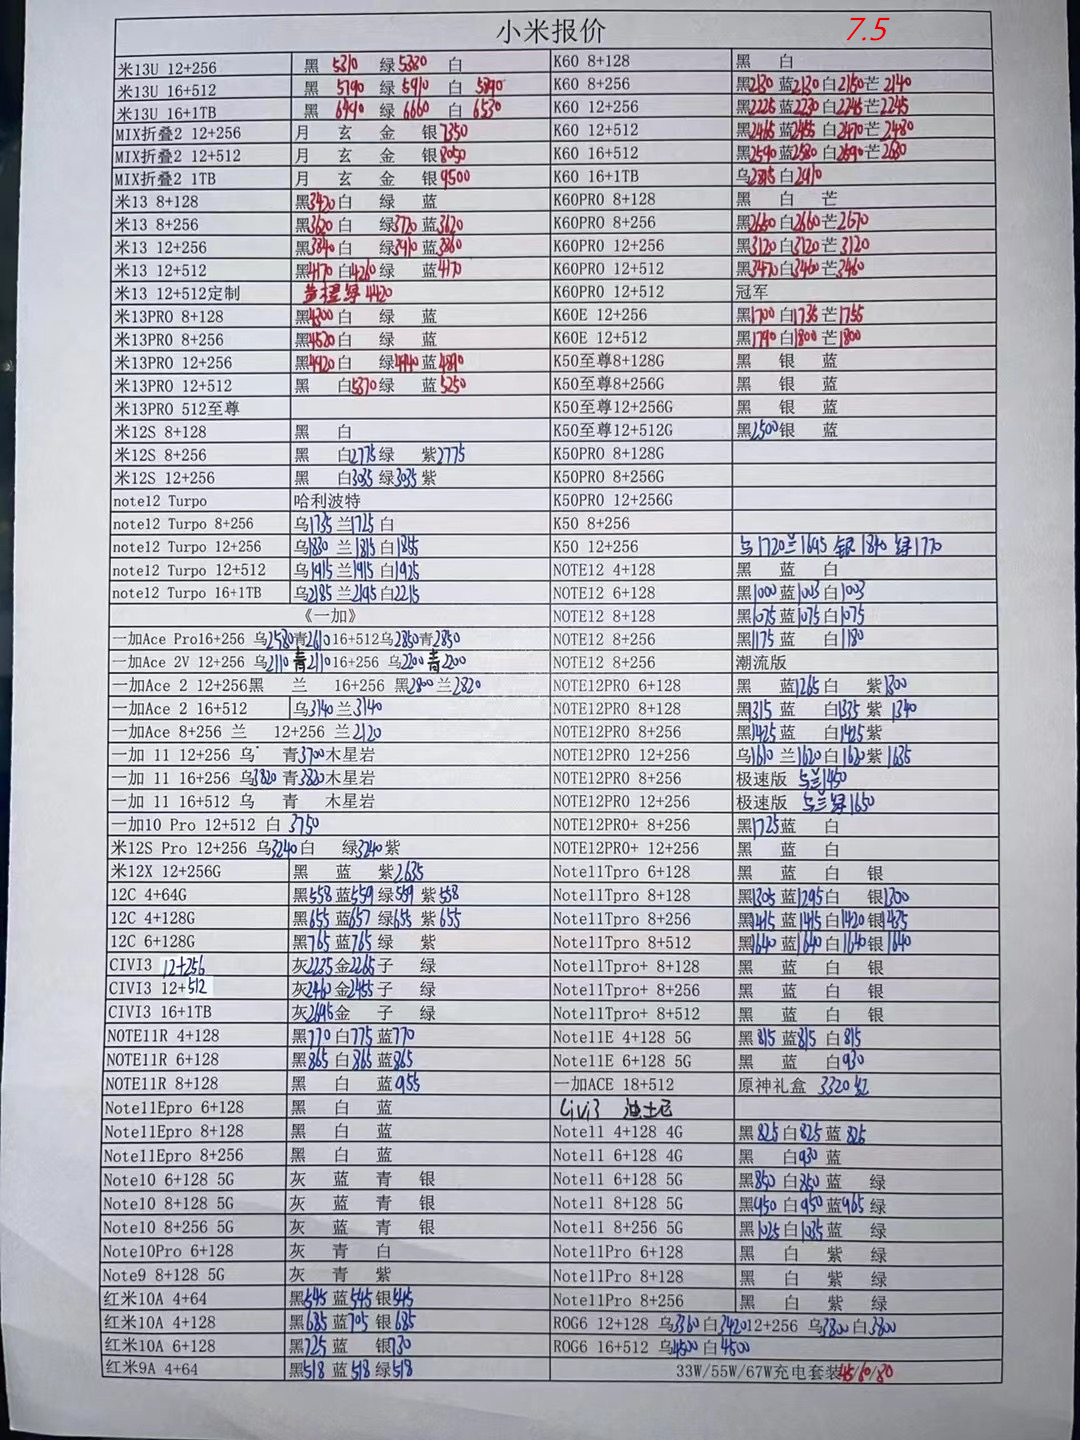 小米报价 7.5
米13U 12+256 黑 5310 绿 5380 白 K60 8+128 黑 白
米13U 16+512 黑 5790 绿 5910 白 5890 K60 8+256 黑2130 蓝2130 白2150 芒2140
米13U 16+1TB 黑 6490 绿 6660 白 6530 K60 12+256 黑2225 蓝2230 白2245 芒2245
MIX折叠2 12+256 月 玄 金 银7350 K60 12+512 黑2465 蓝2455 白2470 芒2480
MIX折叠2 12+512 月 玄 金 银8050 K60 16+512 黑2590 蓝2580 白2590 芒2680
MIX折叠2 1TB 月 玄 金 银9500 K60 16+1TB 乌2815 白2910
米13 8+128 黑3420 白 绿 蓝 K60PRO 8+128 黑 白 芒
米13 8+256 黑3620 白 绿3720 蓝3620 K60PRO 8+256 黑2660 白2660 芒2670
米13 12+256 黑3840 白 绿3910 蓝3860 K60PRO 12+256 黑3120 白3120 芒3120
米13 12+512 黑4170 白4260 绿 蓝4170 K60PRO 12+512 黑3470 白3460 芒3460
米13 12+512定制 黄橙绿 4420 K60PRO 12+512 冠军
米13PRO 8+128 黑4300 白 绿 蓝 K60E 12+256 黑1700 白1735 芒1755
米13PRO 8+256 黑4520 白 绿 蓝 K60E 12+512 黑1790 白1800 芒1800
米13PRO 12+256 黑4920 白 绿4940 蓝4890 K50至尊8+128G 黑 银 蓝
米13PRO 12+512 黑 白5370 绿 蓝5250 K50至尊8+256G 黑 银 蓝
米13PRO 512至尊 K50至尊12+256G 黑 银 蓝
米12S 8+128 黑 白 K50至尊12+512G 黑2500 银 蓝
米12S 8+256 黑 白2775 绿 紫2775 K50PRO 8+128G
米12S 12+256 黑 白3035 绿3035 紫 K50PRO 8+256G
note12 Turpo 哈利波特 K50PRO 12+256G
note12 Turpo 8+256 乌1735 兰1725 白 K50 8+256
note12 Turpo 12+256 乌1830 兰1815 白1855 K50 12+256 乌1720 兰1695 银1840 绿1770
note12 Turpo 12+512 乌1915 兰1915 白1925 NOTE12 4+128 黑 蓝 白
note12 Turpo 16+1TB 乌2185 兰2195 白2215 NOTE12 6+128 黑1000 蓝1003 白1003
《一加》 NOTE12 8+128 黑1075 蓝1075 白1075
一加Ace Pro16+256 乌2580 青2610 16+512乌2850 青2850 NOTE12 8+256 黑1175 蓝 白1180
一加Ace 2V 12+256 乌2110 青2110 16+256 乌2200 青2200 NOTE12 8+256 潮流版
一加Ace 2 12+256黑 兰 16+256 黑2800 兰2820 NOTE12PRO 6+128 黑 蓝1265 白 紫1300
一加Ace 2 16+512 乌3140 兰3140 NOTE12PRO 8+128 黑1315 蓝 白1335 紫 1340
一加Ace 8+256 兰 12+256 兰2120 NOTE12PRO 8+256 黑1425 蓝 白1425 紫
一加 11 12+256 乌 青3700 木星岩 NOTE12PRO 12+256 乌1610 兰1620 白1620 紫1635
一加 11 16+256 乌3820 青3820 木星岩 NOTE12PRO 8+256 极速版 乌兰1450
一加 11 16+512 乌 青 木星岩 NOTE12PRO 12+256 极速版 乌兰绿1650
一加10 Pro 12+512 白 3750 NOTE12PRO+ 8+256 黑1725 蓝 白
米12S Pro 12+256 乌3240 白 绿3240 紫 NOTE12PRO+ 12+256 黑 蓝 白
米12X 12+256G 黑 蓝 紫2635 Note11Tpro 6+128 黑 蓝 白 银
12C 4+64G 黑558 蓝559 绿559 紫558 Note11Tpro 8+128 黑1305 蓝1295 白 银1300
12C 4+128G 黑655 蓝657 绿655 紫655 Note11Tpro 8+256 黑1415 蓝1415 白1420 银1435
12C 6+128G 黑765 蓝765 绿 紫 Note11Tpro 8+512 黑1640 蓝1640 白1640 银1640
CIVI3 12+256 灰2235 金2265 子 绿 Note11Tpro+ 8+128 黑 蓝 白 银
CIVI3 12+512 灰2460 金2455 子 绿 Note11Tpro+ 8+256 黑 蓝 白 银
CIVI3 16+1TB 灰2695 金 子 绿 Note11Tpro+ 8+512 黑 蓝 白 银
NOTE11R 4+128 黑770 白775 蓝770 Note11E 4+128 5G 黑815 蓝815 白815
NOTE11R 6+128 黑865 白865 蓝865 Note11E 6+128 5G 黑 蓝 白930
NOTE11R 8+128 黑 白 蓝955 一加ACE 18+512 原神礼盒 3320红
Note11Epro 6+128 黑 白 蓝 Civi3 迪士尼
Note11Epro 8+128 黑 白 蓝 Note11 4+128 4G 黑825 白825 蓝825
Note11Epro 8+256 黑 白 蓝 Note11 6+128 4G 黑 白930 蓝
Note10 6+128 5G 灰 蓝 青 银 Note11 6+128 5G 黑850 白850 蓝 绿
Note10 8+128 5G 灰 蓝 青 银 Note11 8+128 5G 黑950 白950 蓝965 绿
Note10 8+256 5G 灰 蓝 青 银 Note11 8+256 5G 黑1025 白1035 蓝 绿
Note10Pro 6+128 灰 青 白 Note11Pro 6+128 黑 白 紫 绿
Note9 8+128 5G 灰 青 紫 Note11Pro 8+128 黑 白 紫 绿
红米10A 4+64 黑545 蓝545 银545 Note11Pro 8+256 黑 白 紫 绿
红米10A 4+128 黑685 蓝705 银685 ROG6 12+128 乌3360 白3420 12+256 乌3800 白3800
红米10A 6+128 黑725 蓝 银730 ROG6 16+512 乌4500 白4500
红米9A 4+64 黑518 蓝518 绿518 33W/55W/67W充电套装45/60/80